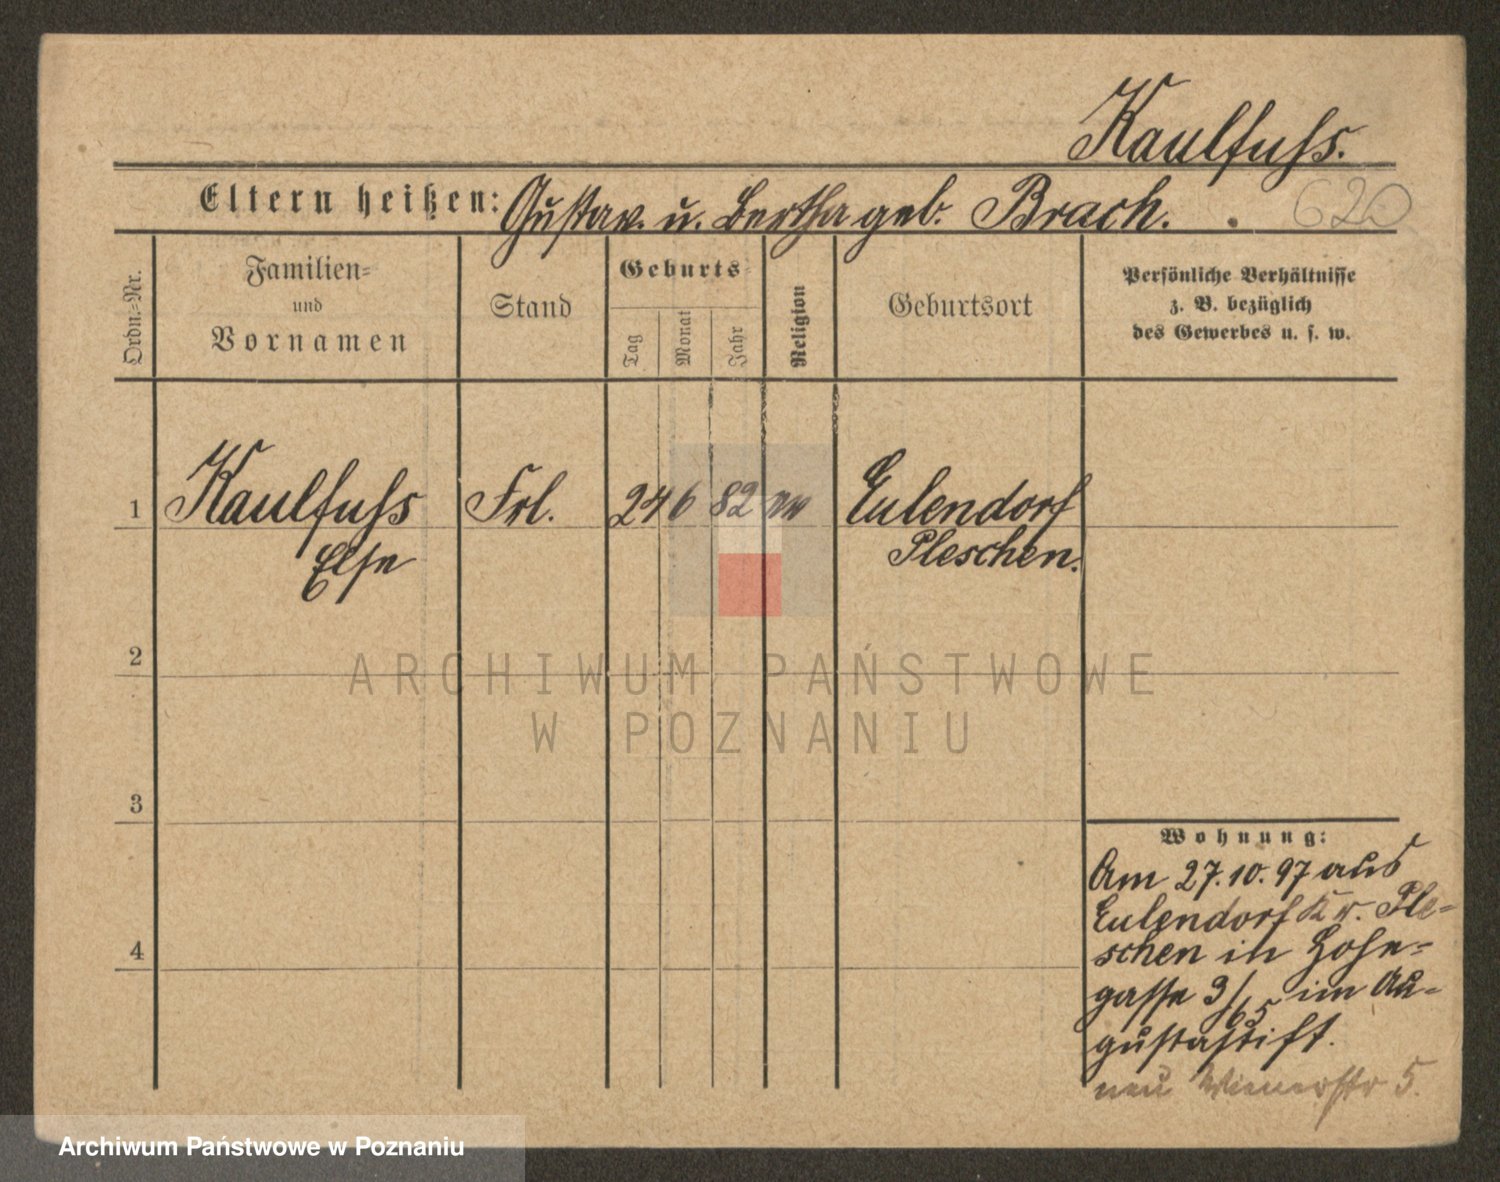 Kaulfuss.
Eltern heißen: Gustav. u. Bertha geb. Brach.
620
Ordn.=Nr.
Familien=
und
Vornamen
Stand
Geburts=
Tag
Monat
Jahr
Religion
Geburtsort
Persönliche Verhältnisse
z. B. bezüglich
des Gewerbes u. s. w.
1 Kaulfuss Frl. 24 6 82 ev Eulendorf
Else Pleschen.
2
ARCHIWUM PAŃSTWOWE
W POZNANIU
3
Wohnung:
Am 27.10.97 aus
Eulendorf Kr. Ple-
schen in Hohe-
gasse 3/65 im Au-
gustastift.
neu Wienerstr 5.
4
Archiwum Państwowe w Poznaniu